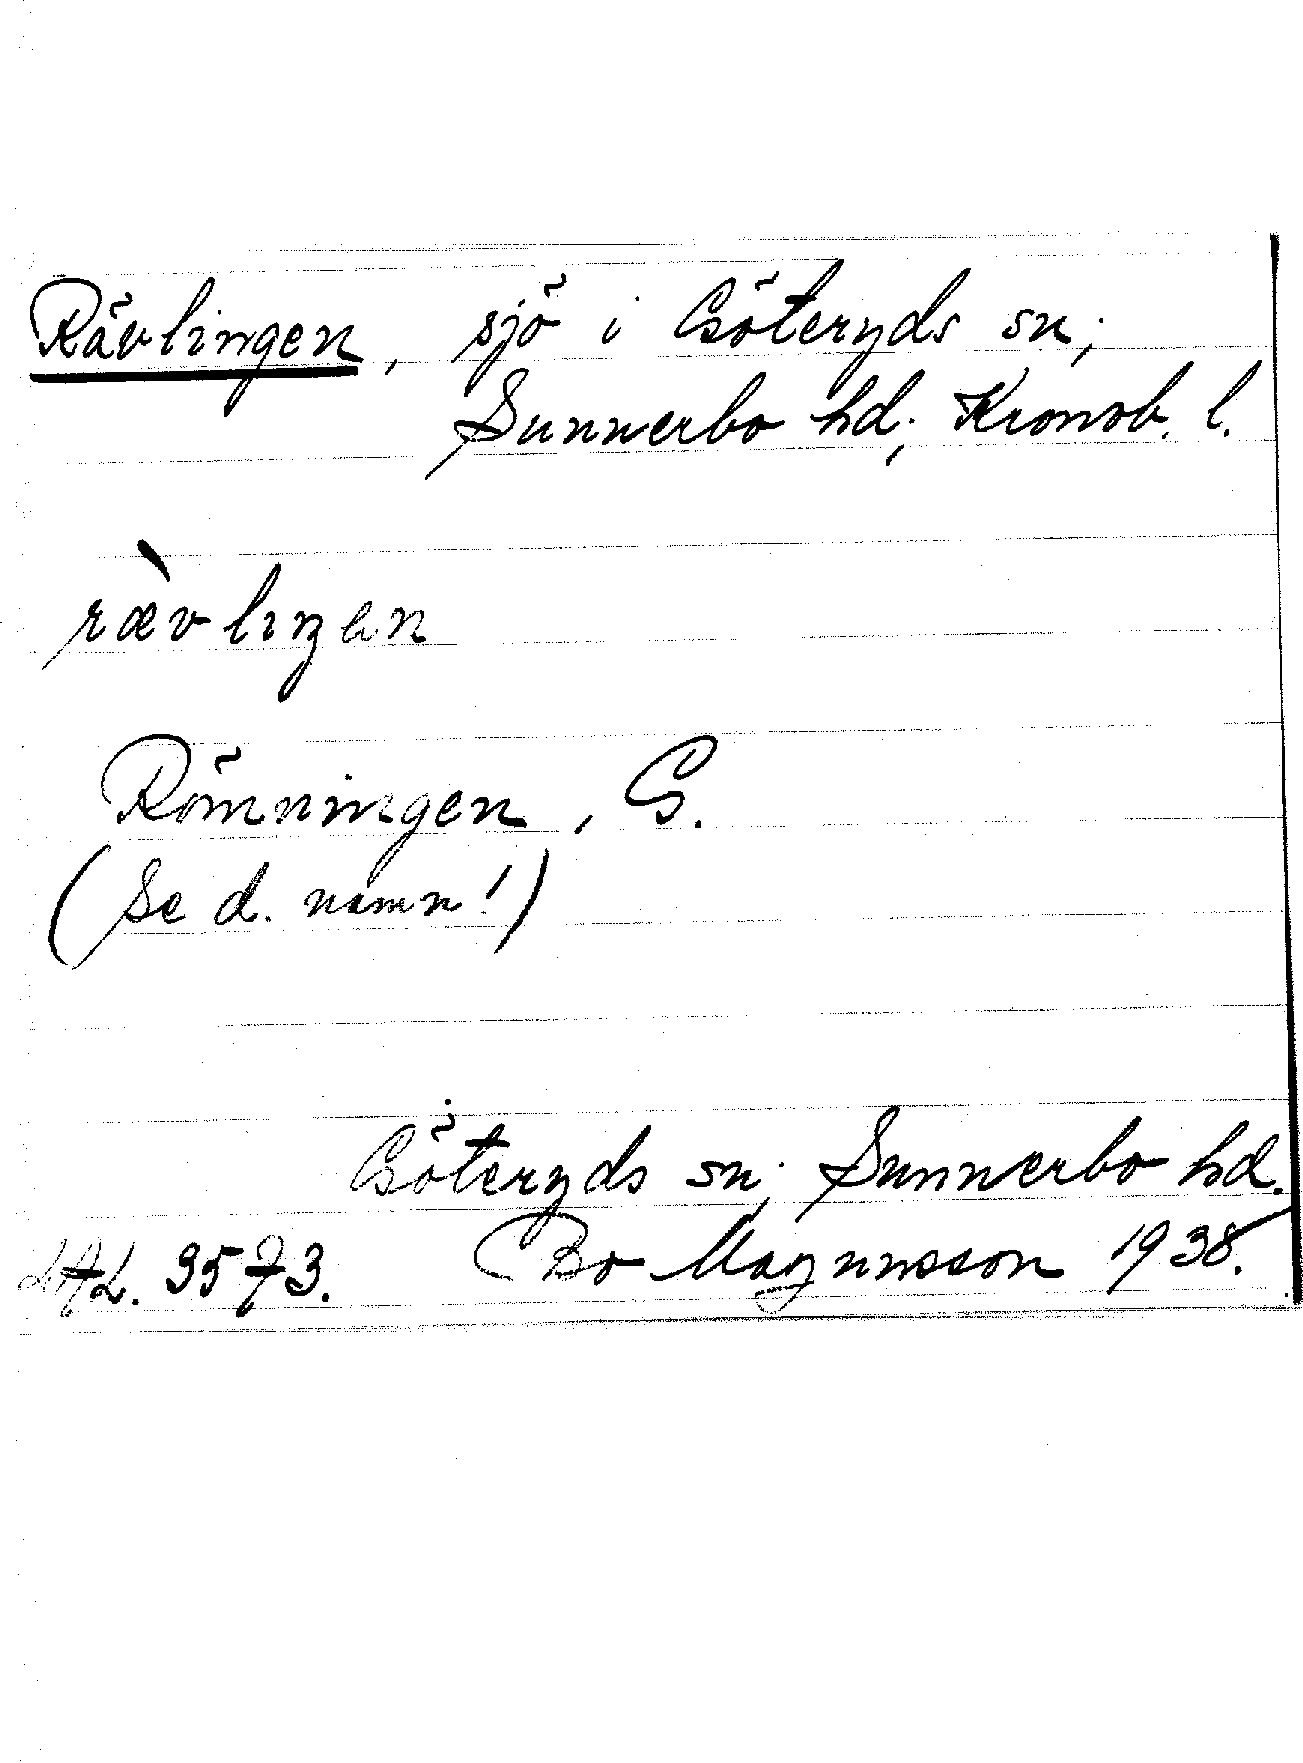 Rävlingen, sjö i Göteryds sn;
Sunnerbo hd; Kronob. l.
rævlıŋen
Römningen, G.
(Se d. namn!)
Göteryds sn; Sunnerbo hd.
LAL. 3573. Bo Magnusson 1938.